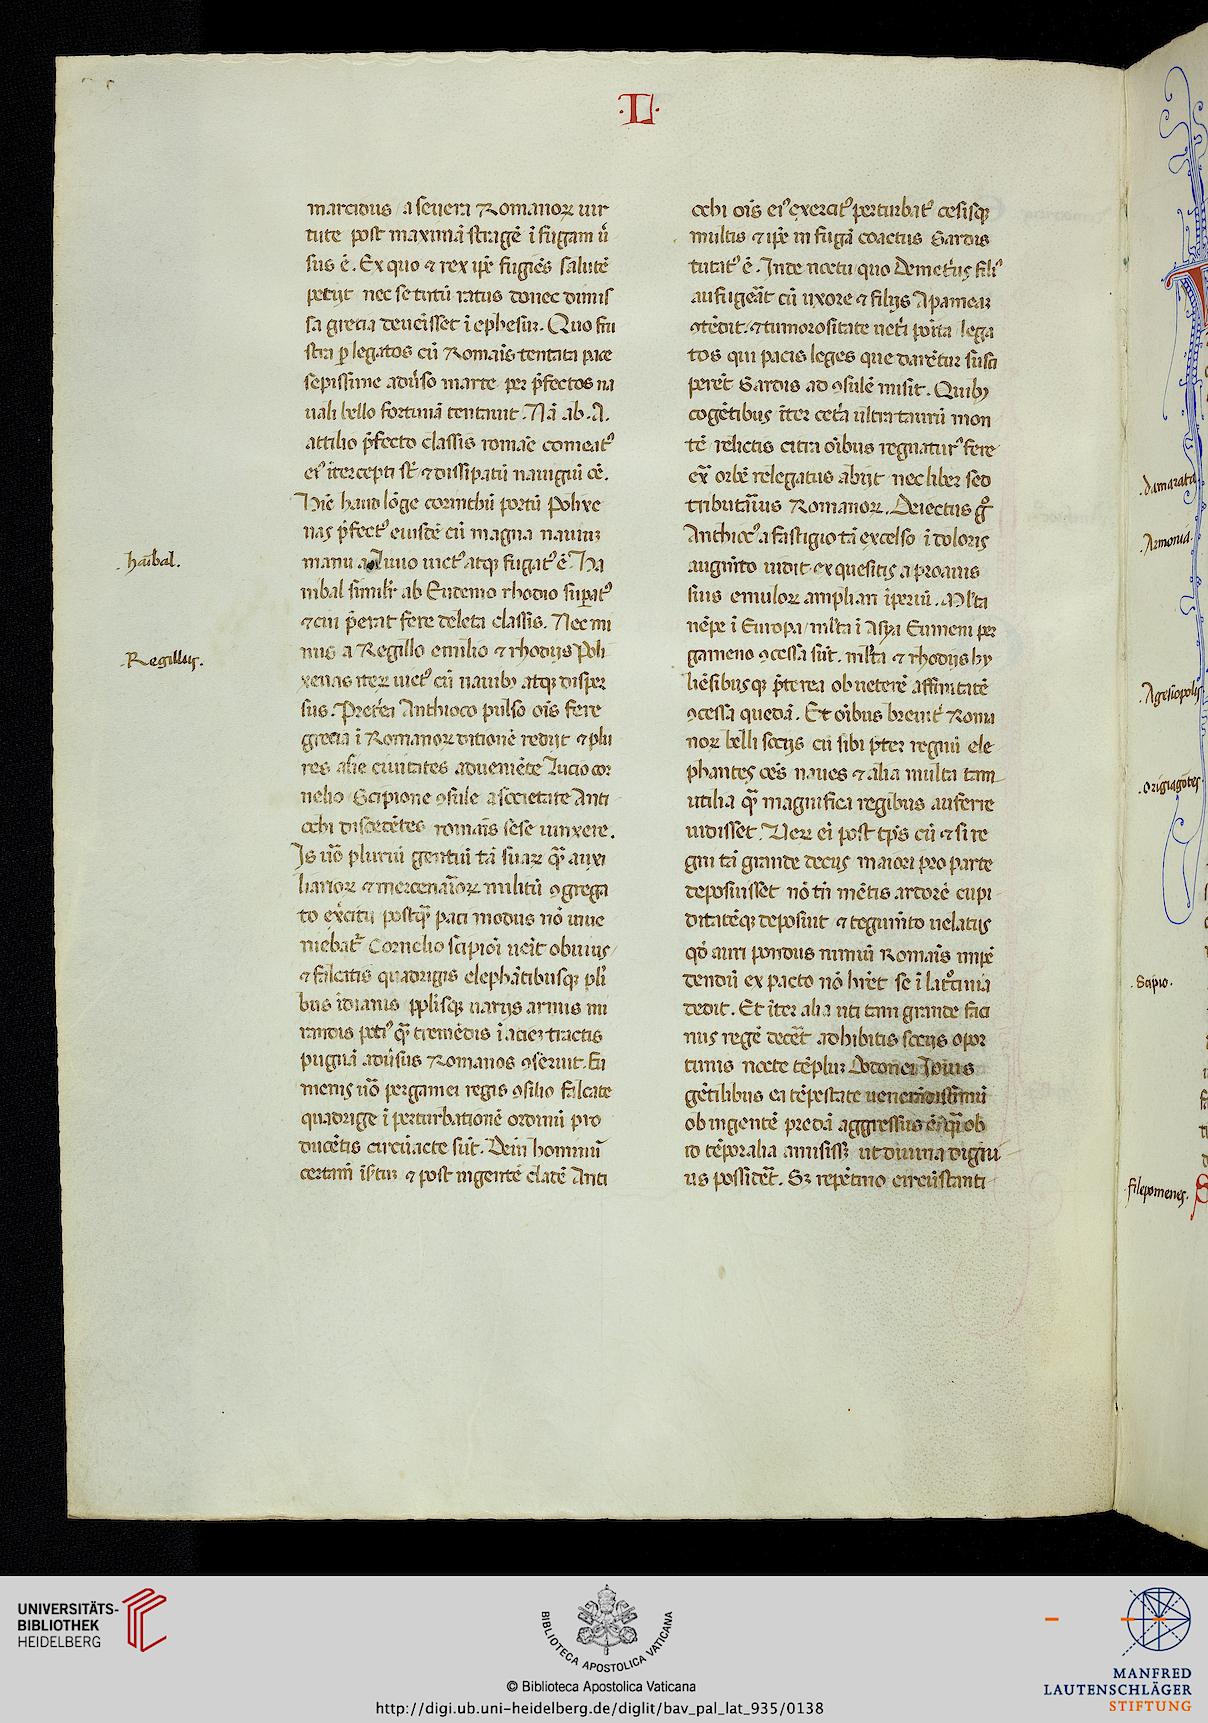 ·L·
marcidus / a seuera Romanoꝝ uir
tute post maximā stragē ī fugam ů
sus ē. Ex quo ⁊ rex ip̄e fugiēs salutē
petijt nec se tutū ratus donec dimis
sa grecia deueīsset ī ephesuꝫ. Quo fru
stra ꝑ legatos cū Romaīs tentata pace
sepissime adůso marte per p̄fectos na
uali bello fortunā tentauit. Nā ab .A.
attilio p̄fecto classis romāe comeatꝰ
eiꝰ ītercepti st̄ ⁊ dissipatū nauigiū ēe.
Hīc haud lōge corinthū portū Polixe
nas p̄fectꝰ eiusdē cū magna nauiuꝫ
manu a Liuio uictꝰ atqꝫ fugatꝰ ē. Ha
nibal similr̄ ab Eudemo rhodio suꝑatꝰ
⁊ cui p̄erat fere deleta classis. Nec mi
nus a Regillo emilio ⁊ rhodijs Poli
xenas iteꝝ uictꝰ cū nauibꝫ atqꝫ disper
sus. Pret̄ea Anthioco pulso oīs fere
grecia ī Romanoꝝ ditionē redijt ⁊ plu
res asie ciuitates adueniēte Lucio cor
nelio Scipione ꝯsule a societate Anti
ochi discedētes romaīs sese iunxere.
Is ůo plurīū gentiū tā suaꝝ qꝫ auxi
liarioꝝ ⁊ mercenarioꝝ militū ꝯgrega
to exc̄itu postqꝫ paci modus nō inue
niebat᷑ Cornelio scipioī ueīt obuius /
⁊ falcatis quadrigis elephātibusqꝫ pli
bus īdianis pp̄lisqꝫ uarijs armis mi
randis potiꝰ qꝫ tremēdis ī acieꝫ tractis
pugnā adůsus Romanos ꝯseruit. Eu
menis ůo pergamei regis ꝯsilio falcate
quadrige ī perturbationē ordinū pro
ducētis circūacte sūt. Dein hominū
certam̄ īst̄tuꝫ ⁊ post ingentē cladē Anti
ochi oīs eiꝰ exercitꝰ perturbatꝰ cesisqꝫ
multis ⁊ ip̄e in fugā coactus Sardis
tutatꝰ ē. Inde noctu quo Demetrius filiꝰ
aufugeāt cū uxore ⁊ filijs Apameaꝫ
ꝯtēdit. ⁊ tumorositate uet̄i posita lega
tos qui pacis leges que darētur susci
perēt Sardis ad ꝯsulē misit. Quibꝫ
cogētibus īter cet̄a ultra taurū mon
tē relictis citra oībus regnaturꝰ fere
ex̄ orbē relegatus abijt nec liber sed
tributarius Romanoꝝ. Deiectus g̊
Anthiocꝰ a fastigio tā excelso ī doloris
augm̄to uidit ex quesitis a proauis
suis emuloꝝ ampliari īperiū. Ml̄ta
nēpe ī Europa / ml̄ta ī Asya Eumeni per
gameno ꝯcessa sūt. ml̄ta ⁊ rhodijs hy
liēsibusqꝫ p̄terea ob ueterē affinitatē
ꝯcessa quedā. Et oībus breuit̄ Roma
noꝝ belli socijs cū sibi p̄ter regnū ele
phantes oēs naues ⁊ alia multa tam
utilia qꝫ magnifica regibus auferre
uidisset. Veꝝ ei post tp̄s cū ⁊ si re
gni tā grande decus maiori pro parte
deposuisset nō tn̄ mētis ardorē cupi
ditatēqꝫ deposuit ⁊ tegum̄to uelatus
qd̄ auri pondus nimiū Romaīs īnpē
dendū ex pacto nō hr̄et se ī latrocinia
dedit. Et īter alia uti tam grande faci
nus regē decēt adhibitis socijs opor
tunis nocte tēpluꝫ Dodonei Iouis
gētilibus ea tēpestate uenerādissimū
ob ingentē predā aggressus ē / qꝫ ob
īo tēporalia amisissꝫ ut diuina digni
us possidēt. Sꝫ repētino circūstanti
·haībal.
·Regillus.
·Damarata
·Armonia·
·Agesiopolis
·origiagotes
·Scipio·
·filepomenes·
UNIVERSITÄTS-
BIBLIOTHEK
HEIDELBERG
BIBLIOTECA APOSTOLICA VATICANA
© Biblioteca Apostolica Vaticana
http://digi.ub.uni-heidelberg.de/diglit/bav_pal_lat_935/0138
MANFRED
LAUTENSCHLÄGER
STIFTUNG